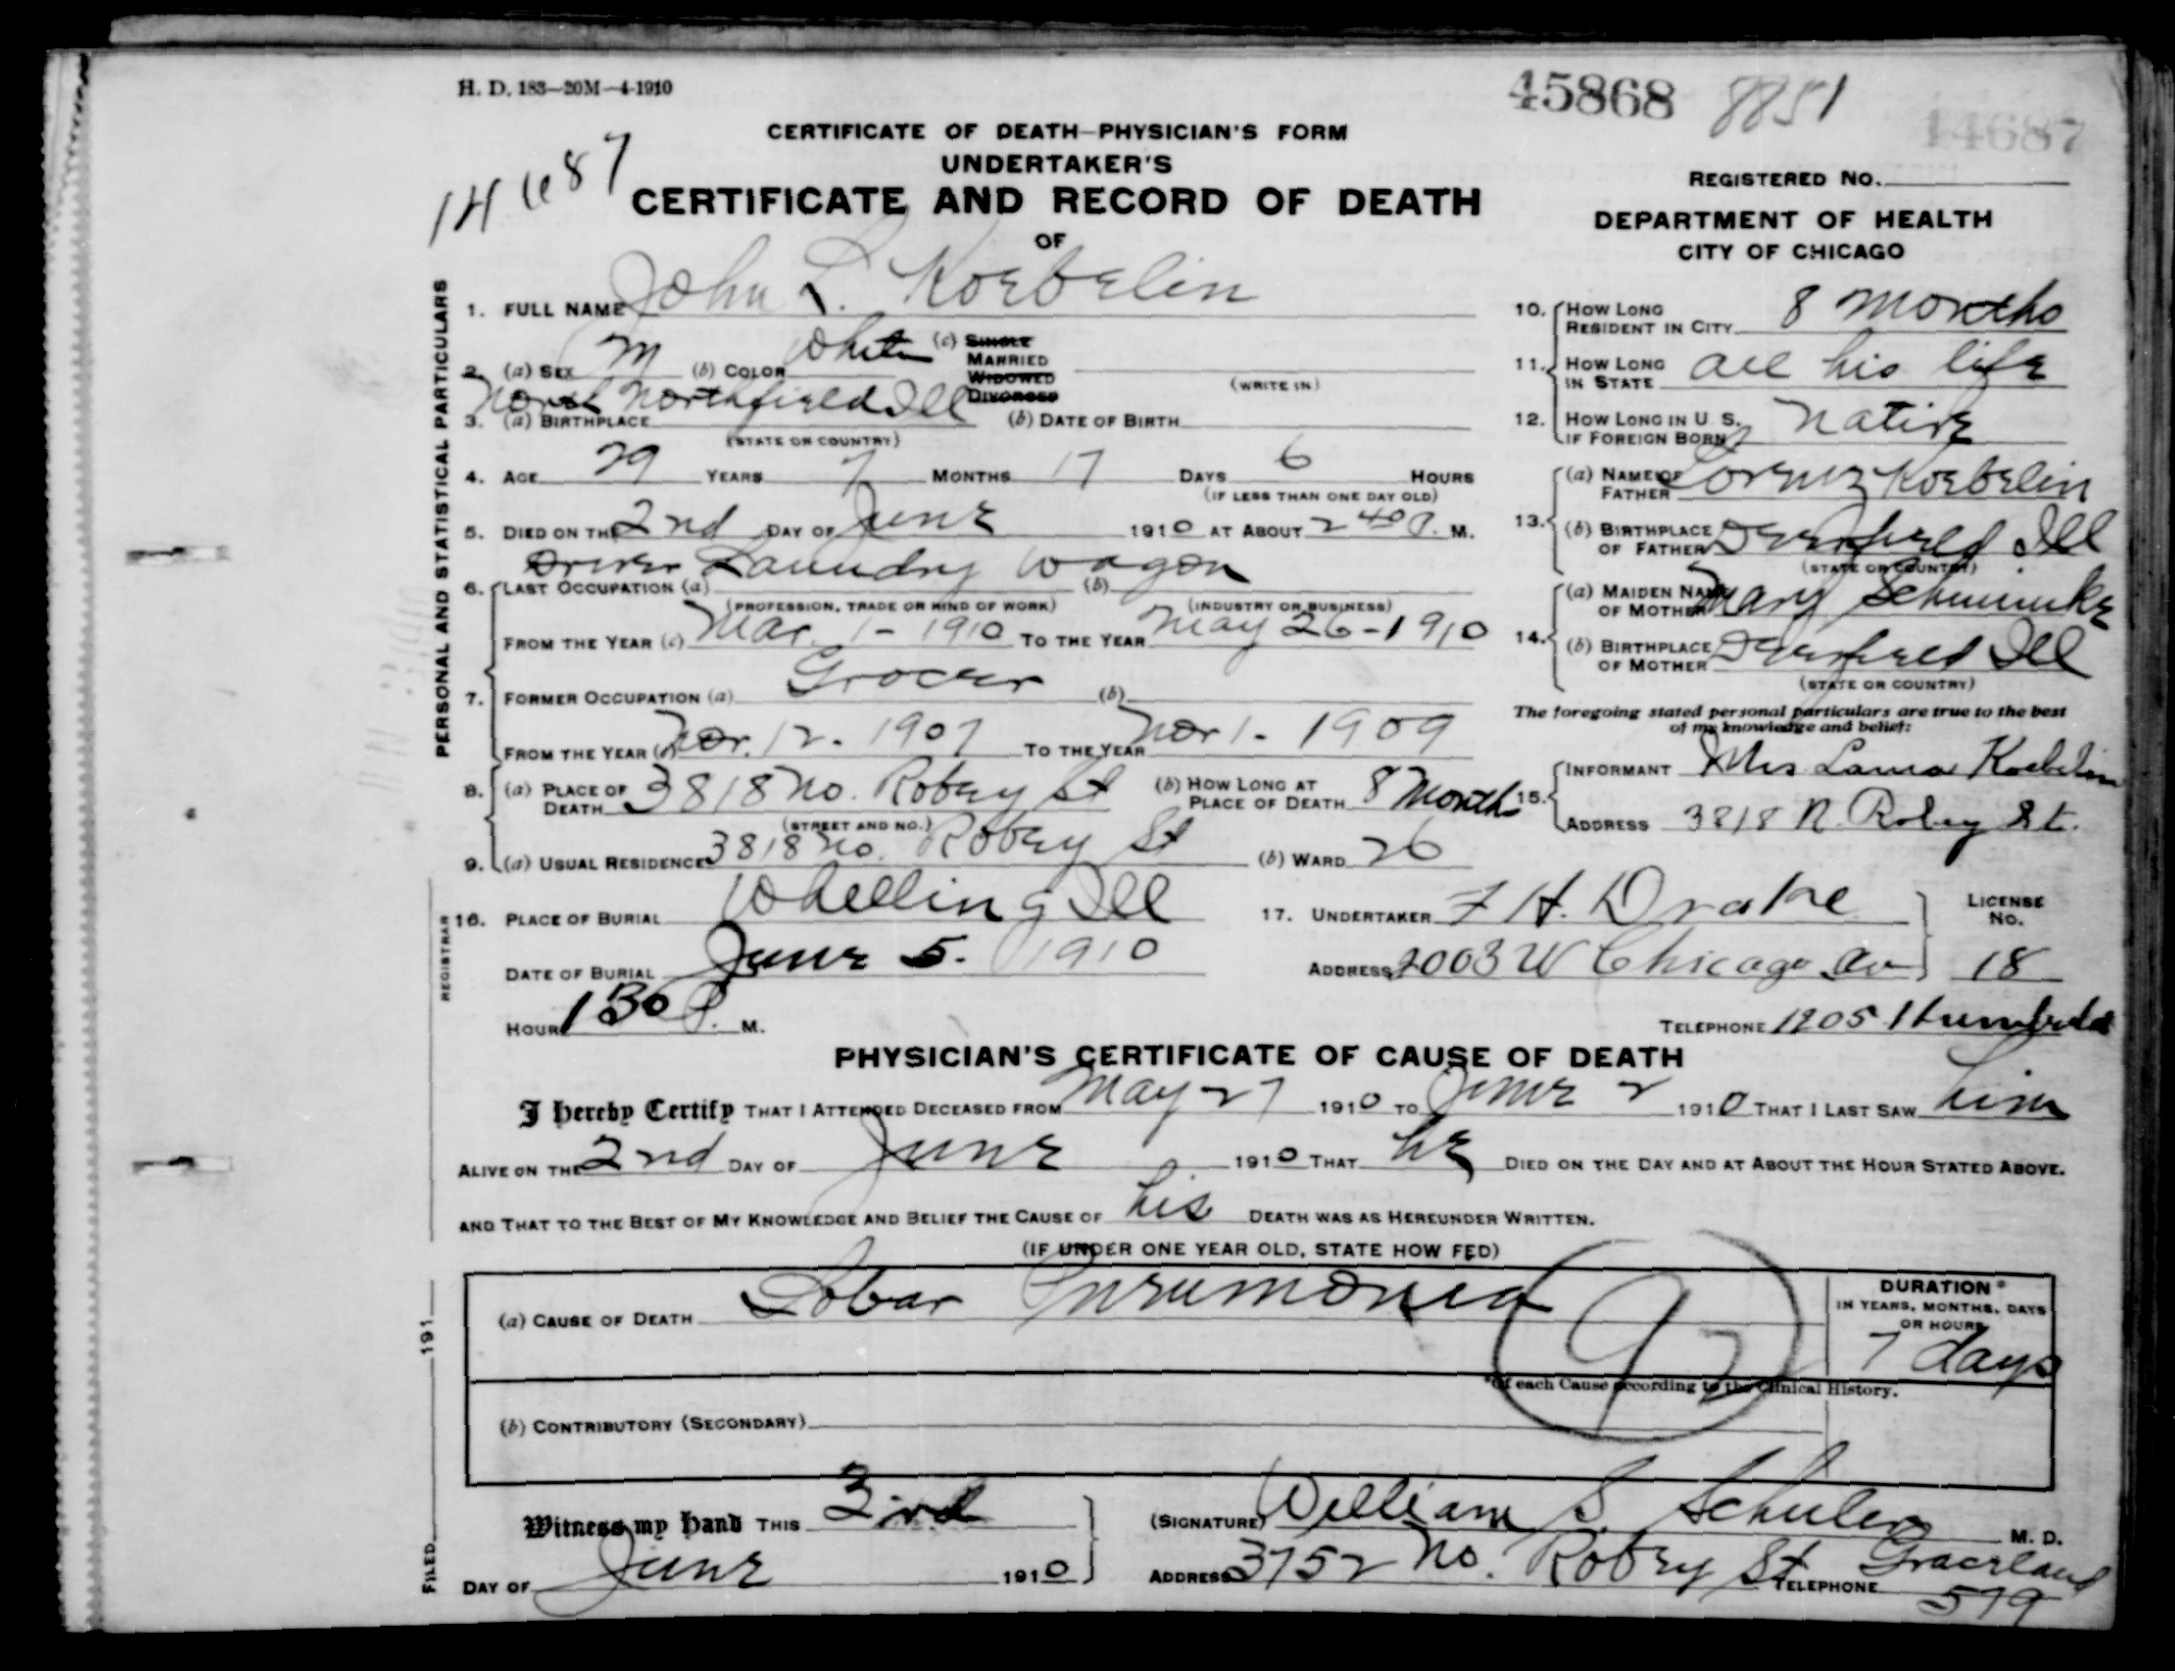 H. D. 183—20M—4-1910
45868 8851
14687
14687
CERTIFICATE OF DEATH—PHYSICIAN'S FORM
UNDERTAKER'S
CERTIFICATE AND RECORD OF DEATH
OF
REGISTERED NO.
DEPARTMENT OF HEALTH
CITY OF CHICAGO
PERSONAL AND STATISTICAL PARTICULARS
1. FULL NAME John L. Koebelin
2. (a) SEX M (b) COLOR White (c) SINGLE MARRIED WIDOWED DIVORCED
(WRITE IN)
3. (a) BIRTHPLACE Northfield Ill (b) DATE OF BIRTH
(STATE OR COUNTRY)
4. AGE 29 YEARS 7 MONTHS 17 DAYS 6 HOURS
(IF LESS THAN ONE DAY OLD)
5. DIED ON THE 2nd DAY OF June 1910 AT ABOUT 2 40 P. M.
6. LAST OCCUPATION (a) Driver Laundry Wagon (b)
(PROFESSION, TRADE OR KIND OF WORK) (INDUSTRY OR BUSINESS)
FROM THE YEAR (c) Mar. 1 - 1910 TO THE YEAR May 26 - 1910
7. FORMER OCCUPATION (a) Grocer (b)
FROM THE YEAR (c) Nov. 12. 1907 TO THE YEAR Nov 1. 1909
8. (a) PLACE OF DEATH 3818 No. Robey St (b) HOW LONG AT PLACE OF DEATH 8 Months
(STREET AND NO.)
9. (a) USUAL RESIDENCE 3818 No. Robey St (b) WARD 26
10. HOW LONG RESIDENT IN CITY 8 Months
11. HOW LONG IN STATE all his life
12. HOW LONG IN U. S. IF FOREIGN BORN Native
13. (a) NAME OF FATHER Lorenz Koebelin
(b) BIRTHPLACE OF FATHER Deerfield Ill
(STATE OR COUNTRY)
14. (a) MAIDEN NAME OF MOTHER Mary
(b) BIRTHPLACE OF MOTHER Deerfield Ill
(STATE OR COUNTRY)
The foregoing stated personal particulars are true to the best
of my knowledge and belief:
15. INFORMANT Mrs Laura Koebelin
ADDRESS 3818 N. Robey St.
REGISTRAR
16. PLACE OF BURIAL Whelling Ill
DATE OF BURIAL June 5. 1910
HOUR 1 30 P. M.
17. UNDERTAKER F H. Drake
ADDRESS 2003 W Chicago Av
LICENSE NO.
18
TELEPHONE 1205 Humboldt
PHYSICIAN'S CERTIFICATE OF CAUSE OF DEATH
I hereby Certify THAT I ATTENDED DECEASED FROM May 27 1910 TO June 2 1910 THAT I LAST SAW him
ALIVE ON THE 2nd DAY OF June 1910 THAT he DIED ON THE DAY AND AT ABOUT THE HOUR STATED ABOVE.
AND THAT TO THE BEST OF MY KNOWLEDGE AND BELIEF THE CAUSE OF his DEATH WAS AS HEREUNDER WRITTEN.
(IF UNDER ONE YEAR OLD, STATE HOW FED)
(a) CAUSE OF DEATH Lobar Pneumonia 92
DURATION*
IN YEARS, MONTHS, DAYS
OR HOURS
7 days
*Of each Cause according to the Clinical History.
(b) CONTRIBUTORY (SECONDARY)
Witness my hand THIS 3rd
DAY OF June 1910
(SIGNATURE) William S. Schuler M. D.
ADDRESS 3752 No. Robey St TELEPHONE Graceland 579
FILED 191